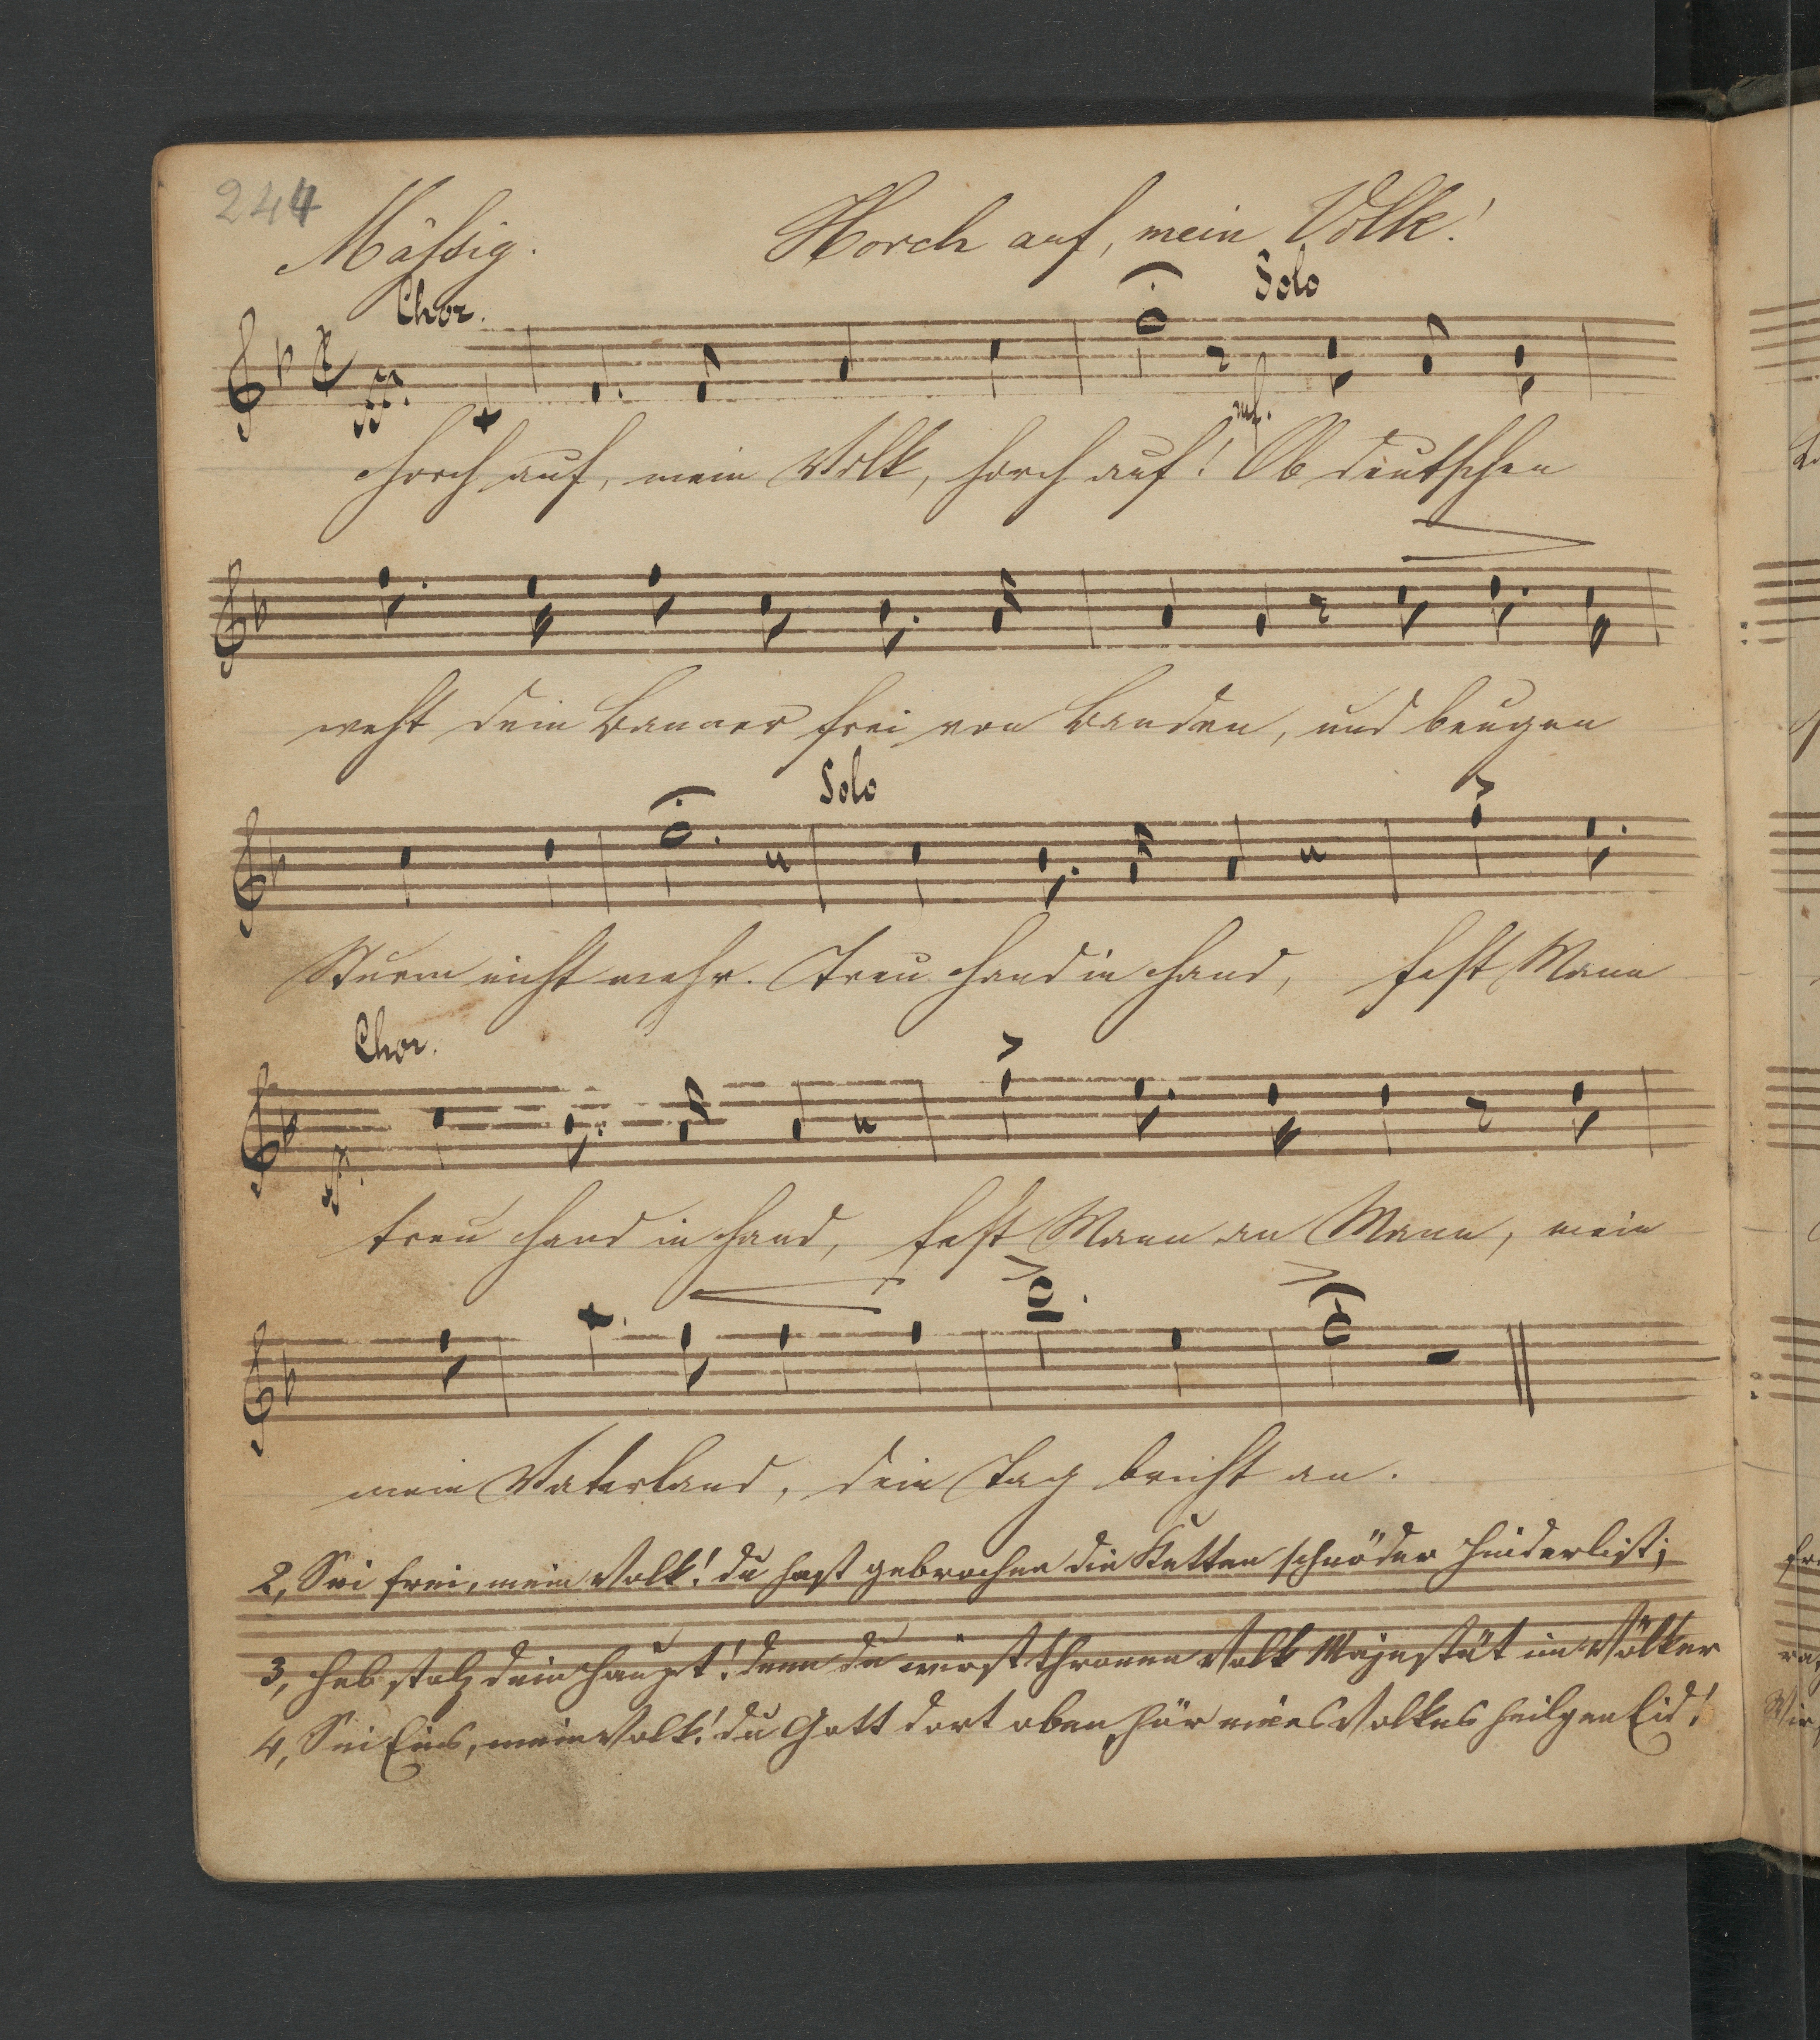 244
Mäßig. Horch auf, mein Volk!
Chor. Solo
ff. mf.
Horch auf, mein Volk, horch auf! Ob deutschen
weht dein Banner frei von Banden, und beugen
Solo
Sturm nicht mehr. Treu Hand in Hand, fest Mann
Chor.
ff.
treu Hand in Hand, fest Mann an Mann, mein
mein Vaterland, dein Tag bricht an.
2, Sei frei, mein Volk! du hast gebrochen die Ketten schnöder Hinderlist;
3, Heb stolz dein Haupt! denn du wirst thronen Volk Majestät im Völker
4, Sei Eins, mein Volk! du Gott dort oben, hör eines Volkes heilgen Eid!